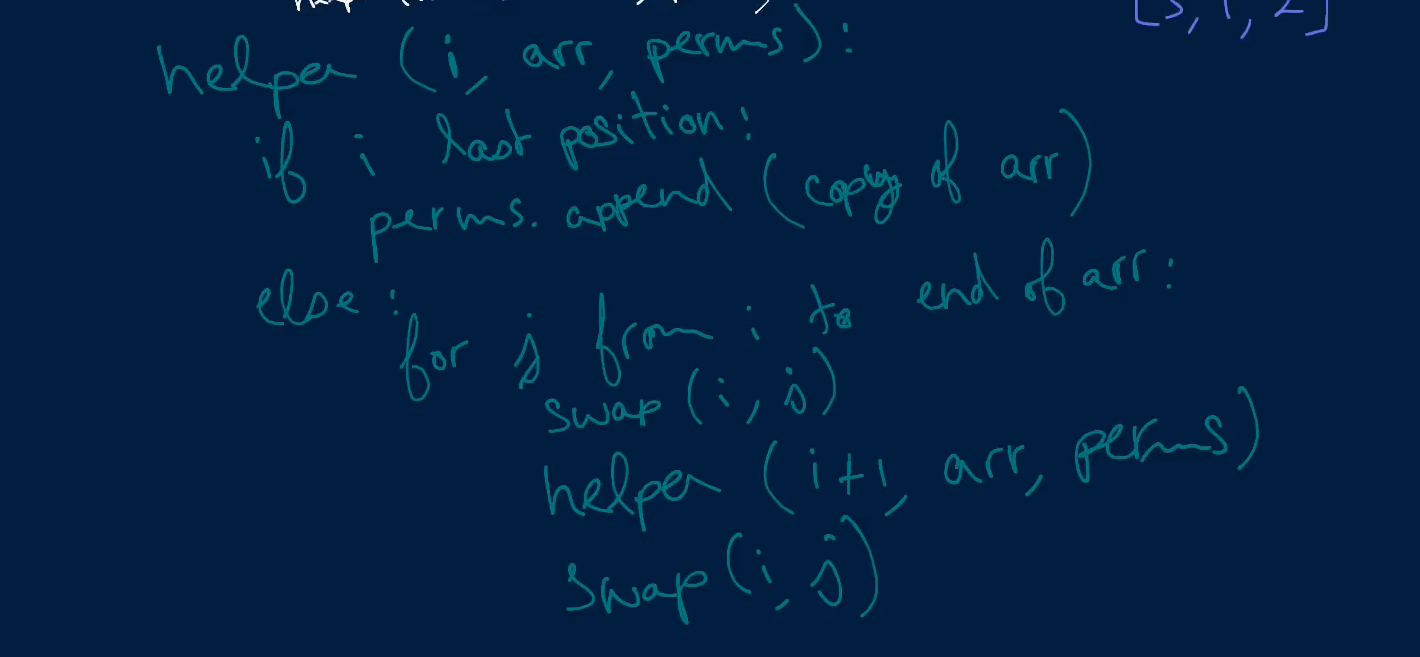 [3, 1, 2]
helper (i, arr, perms):
if i last position:
perms. append (copy of arr)
else:
for j from i to end of arr:
swap (i, j)
helper (i+1, arr, perms)
swap (i, j)